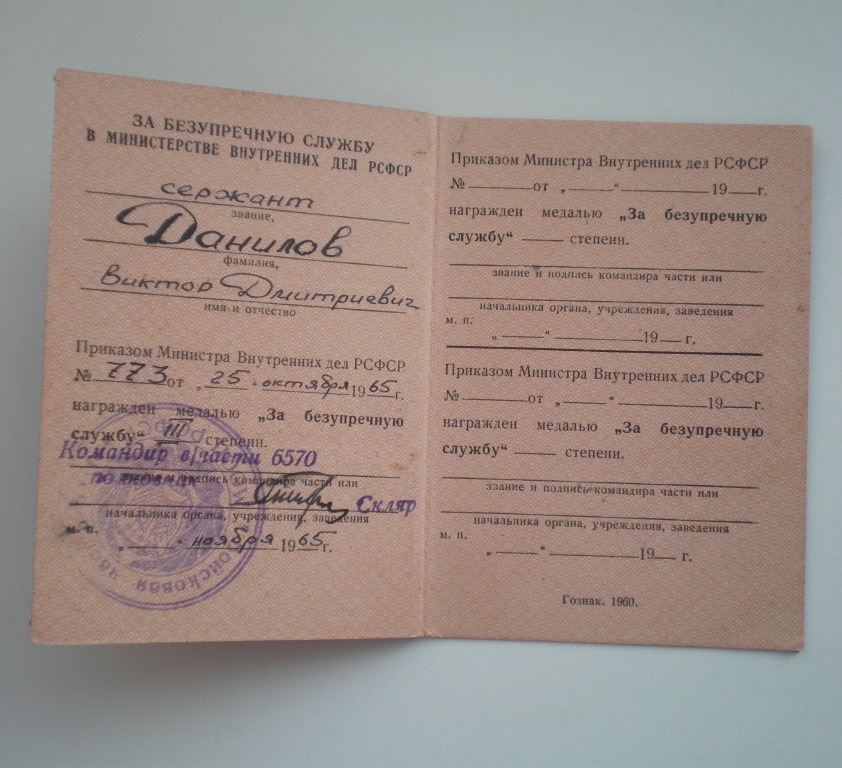 ЗА БЕЗУПРЕЧНУЮ СЛУЖБУ
В МИНИСТЕРСТВЕ ВНУТРЕННИХ ДЕЛ РСФСР
сержант
звание,
Данилов
фамилия,
Виктор Дмитриевич
имя и отчество
Приказом Министра Внутренних дел РСФСР
№ 773 от „25“ октября 1965г.
награжден медалью „За безупречную
службу“ III степени.
Командир в/части 6570
звание и подпись командира части или
полковник Скляр
начальника органа, учреждения, заведения
м. п.
„ “ ноября 1965г.
войсковая часть
Приказом Министра Внутренних дел РСФСР
№ от „ “ 19 г.
награжден медалью „За безупречную
службу“ степени.
звание и подпись командира части или
начальника органа, учреждения, заведения
м. п.
„ “ 19 г.
Приказом Министра Внутренних дел РСФСР
№ от „ “ 19 г.
награжден медалью „За безупречную
службу“ степени.
звание и подпись командира части или
начальника органа, учреждения, заведения
м. п.
„ “ 19 г.
Гознак. 1960.